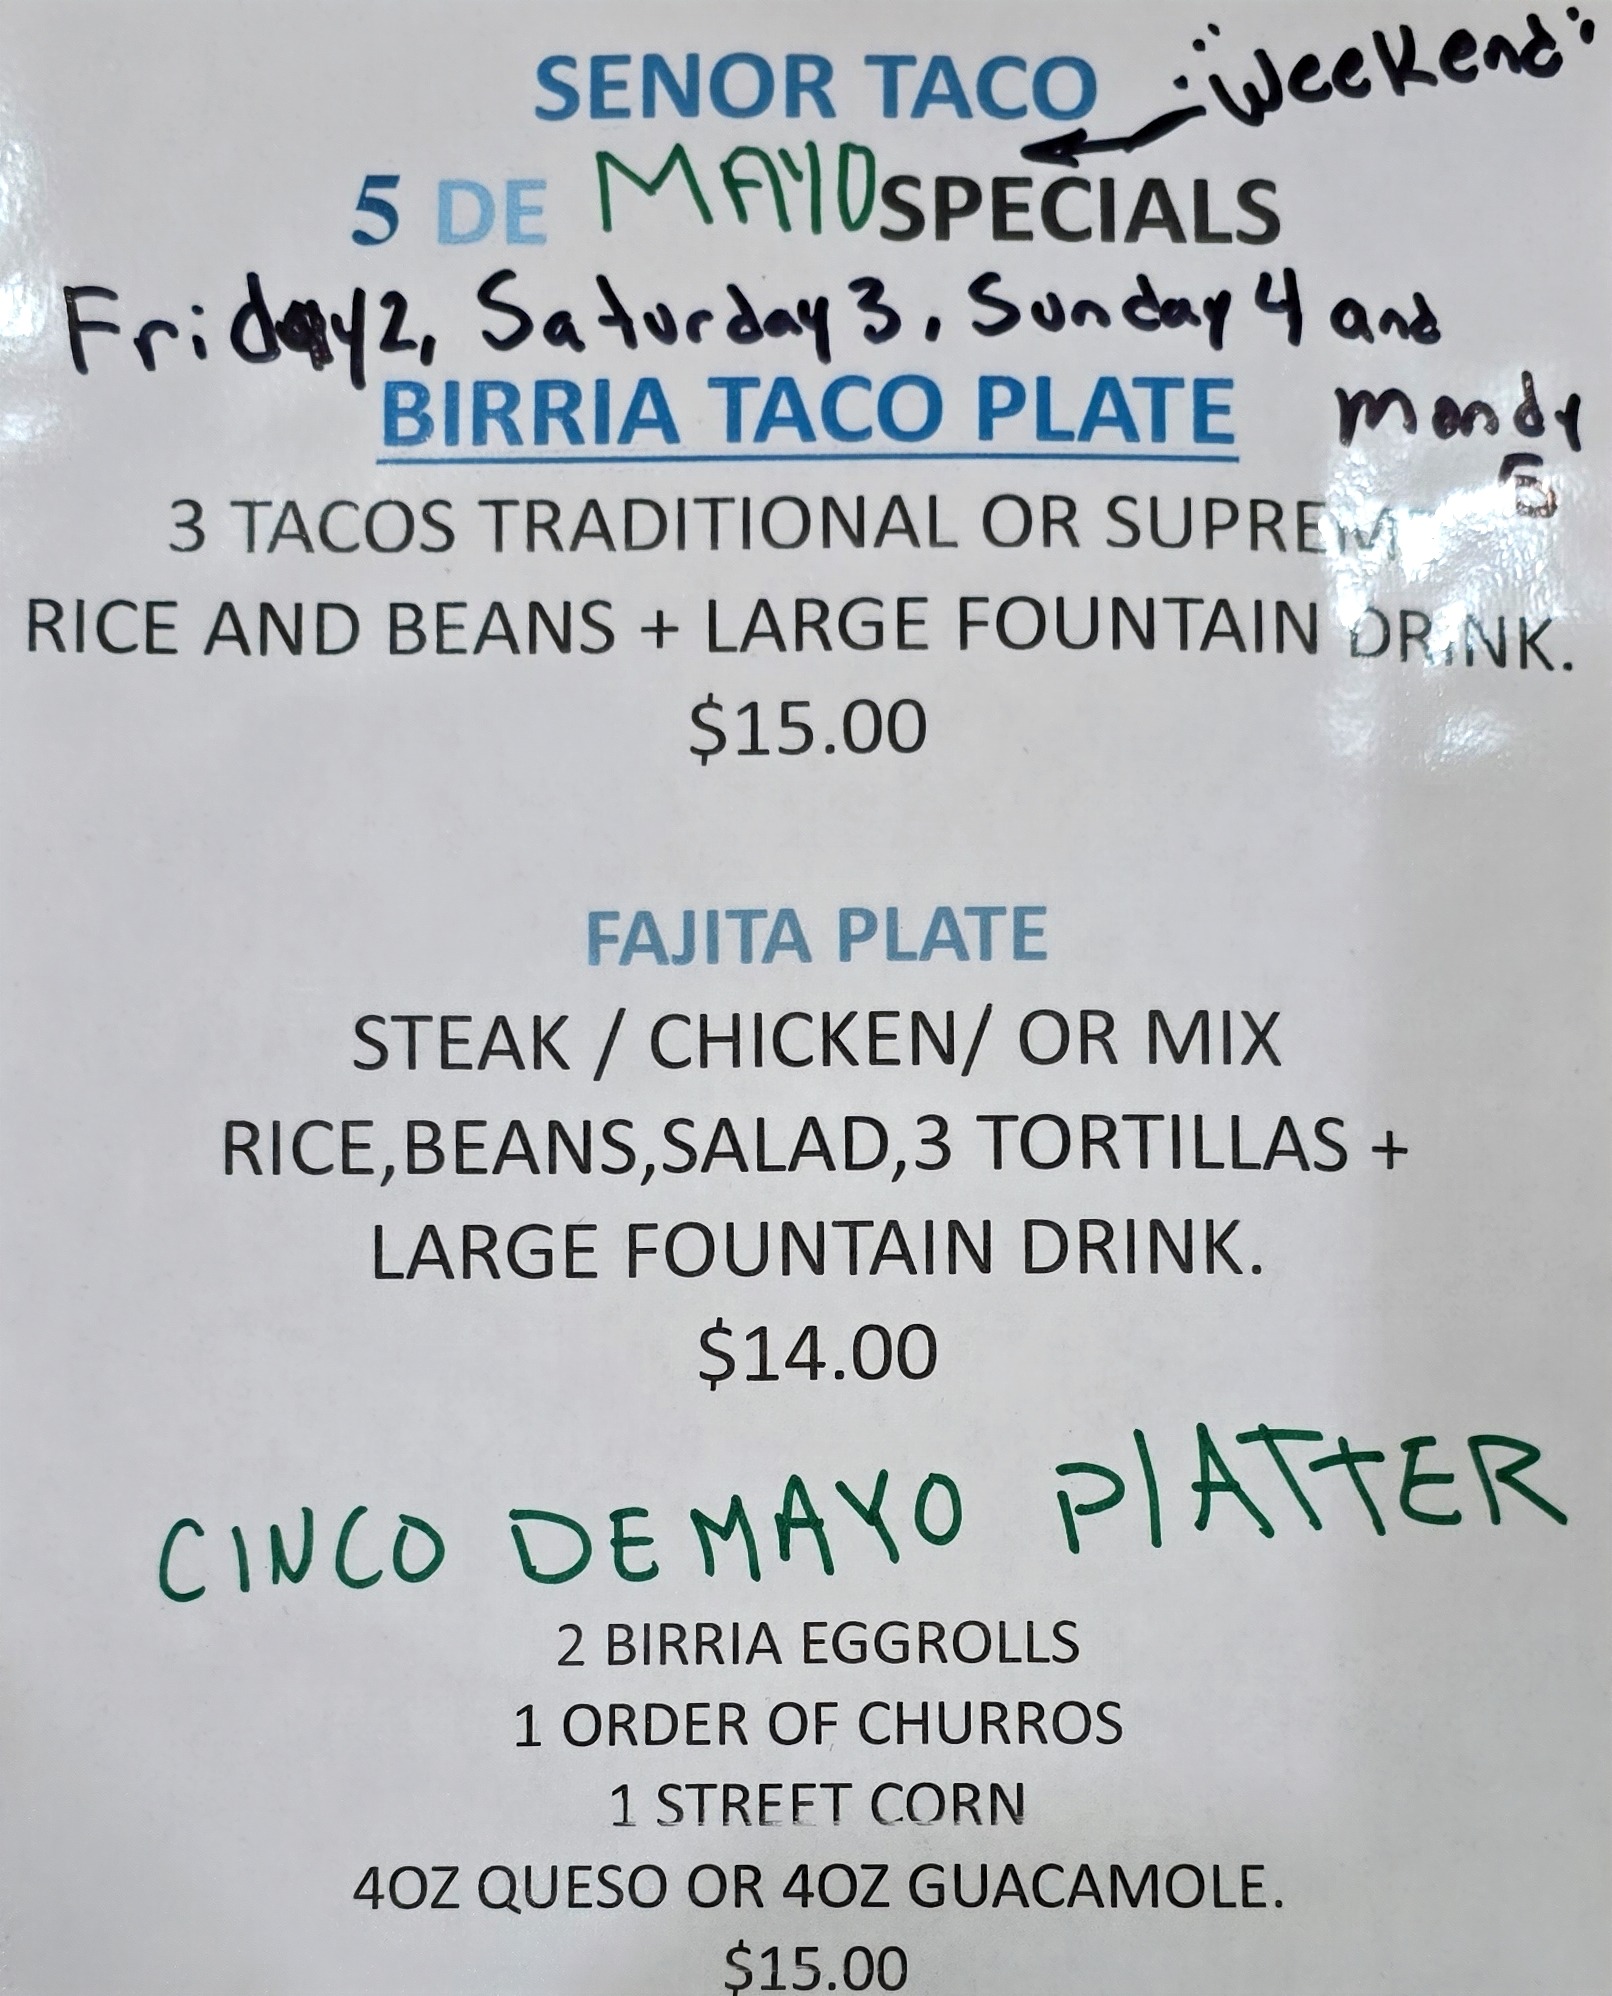 SENOR TACO
"Weekend"
5 DE MAYO SPECIALS
Friday 2, Saturday 3, Sunday 4 and
Mondy
5
BIRRIA TACO PLATE
3 TACOS TRADITIONAL OR
RICE AND BEANS + LARGE FOUNTAIN DRINK.
$15.00
FAJITA PLATE
STEAK / CHICKEN/ OR MIX
RICE,BEANS,SALAD,3 TORTILLAS +
LARGE FOUNTAIN DRINK.
$14.00
CINCO DE MAYO PlATTER
2 BIRRIA EGGROLLS
1 ORDER OF CHURROS
1 STREET CORN
4OZ QUESO OR 4OZ GUACAMOLE.
$15.00